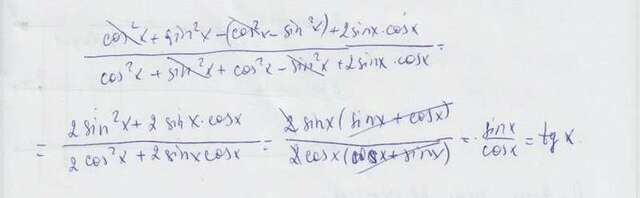 cos²x + sin²x - (cos²x - sin²x) + 2 sinx · cosx
cos²x + sin²x + cos²x - sin²x + 2 sinx · cosx =
= 2 sin²x + 2 sinx · cosx / 2 cos²x + 2 sinx cosx = 2 sinx (sinx + cosx) / 2 cosx (cosx + sinx) = sinx / cosx = tg x.